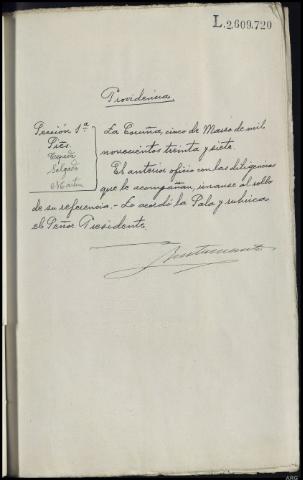 L.2.609.720
Providencia
Sección 1ª
Sres.
Cepeda
Salgado
Martin
La Coruña, cinco de Marzo de mil
novecientos treinta y siete.
El anterior oficio con las diligencias
que le acompañan, unanse al rollo
de su referencia.- Lo acordó la Sala y rubrica
el Señor Presidente.
ARG